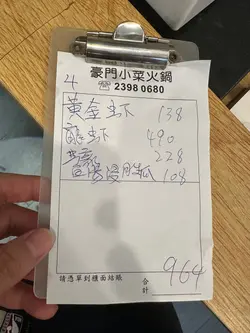 豪門小菜火鍋
☎ 2398 0680
4
黃金虾 138
虾 490
228
浸勝瓜 108
請憑單到櫃面結賬
合計 964